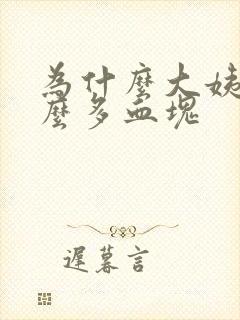 為什麼大姨
麼多血塊
遲暮言